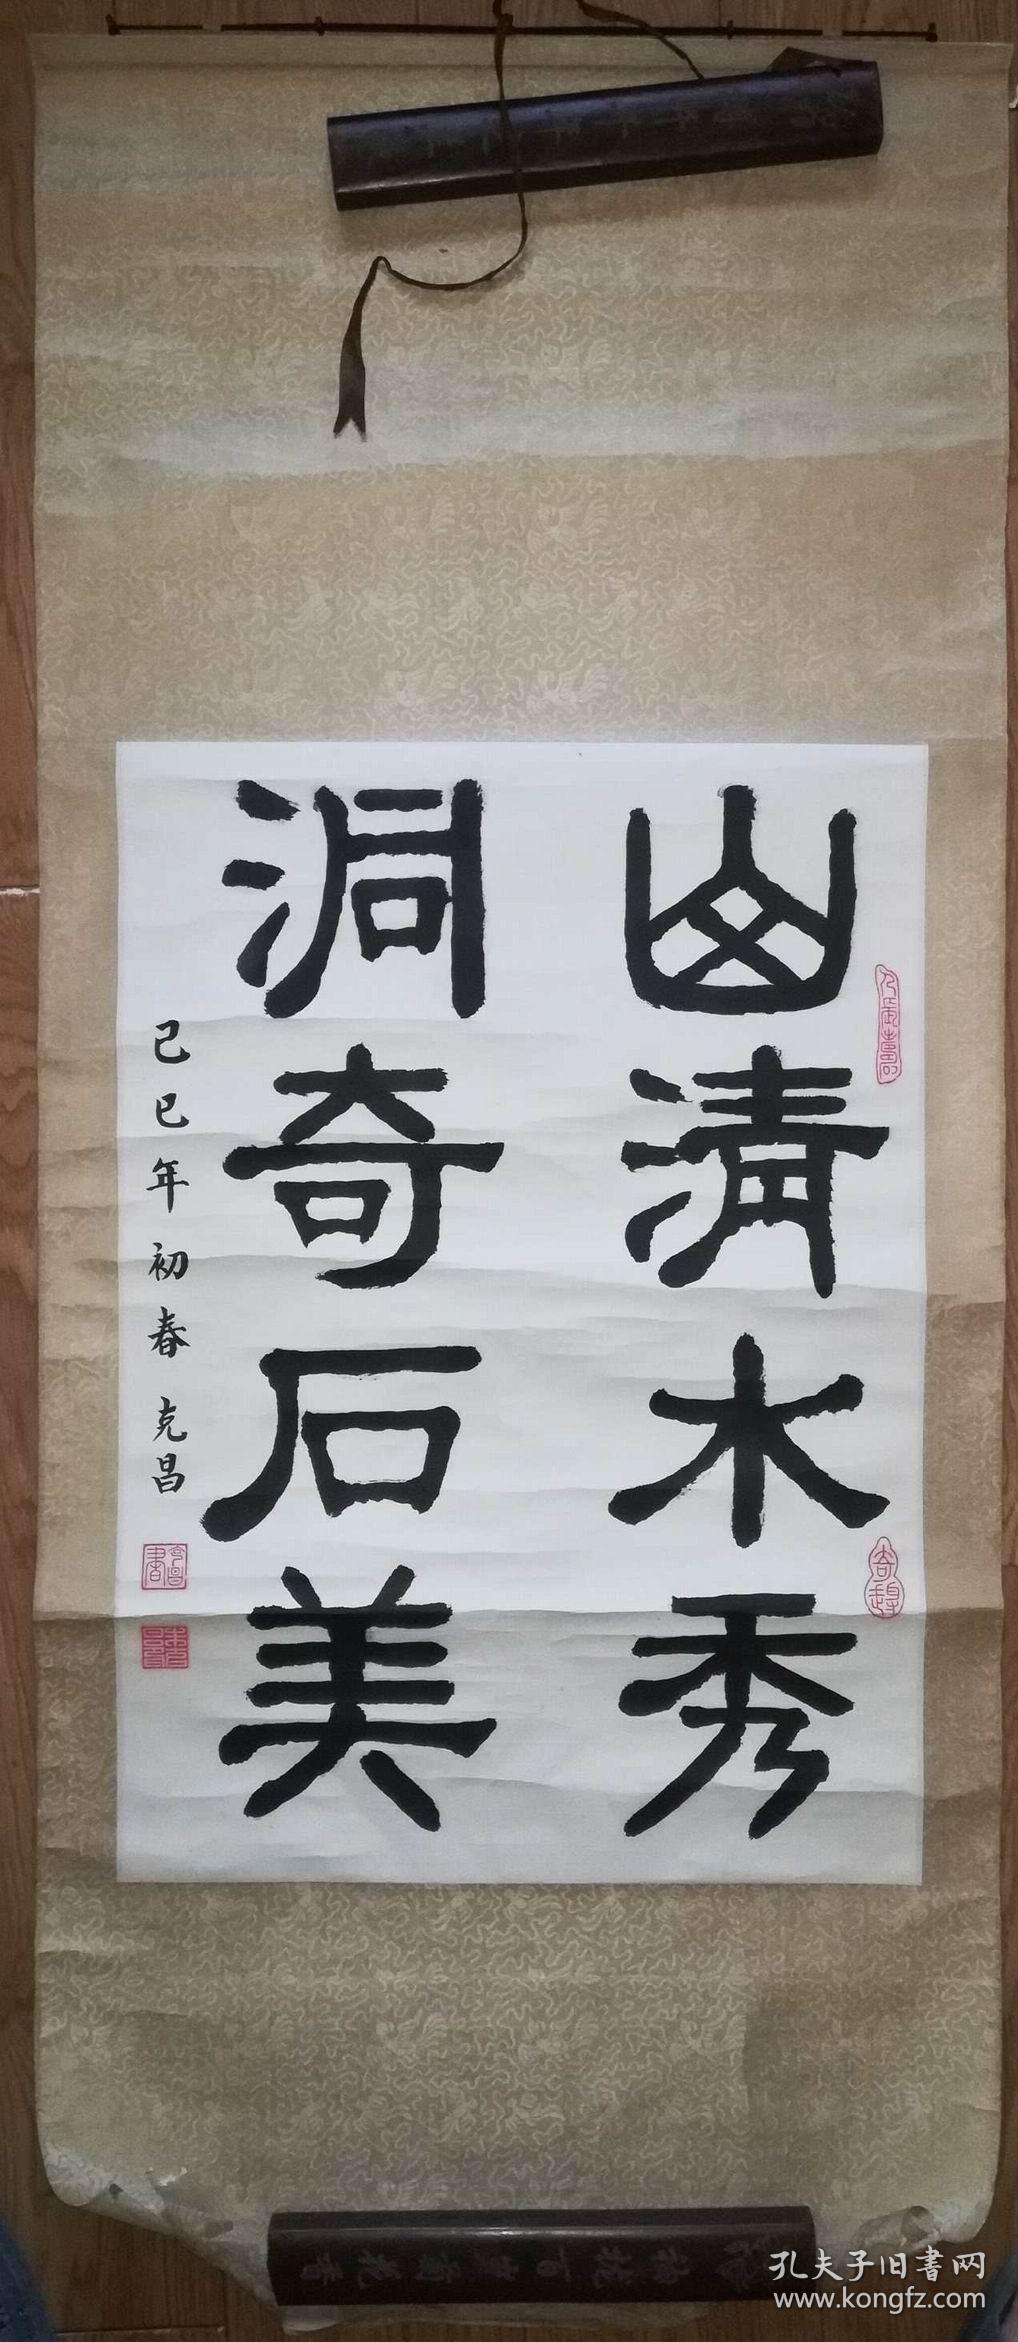 山清水秀
洞奇石美
己巳年初春 克昌
孔夫子旧书网
www.kongfz.com